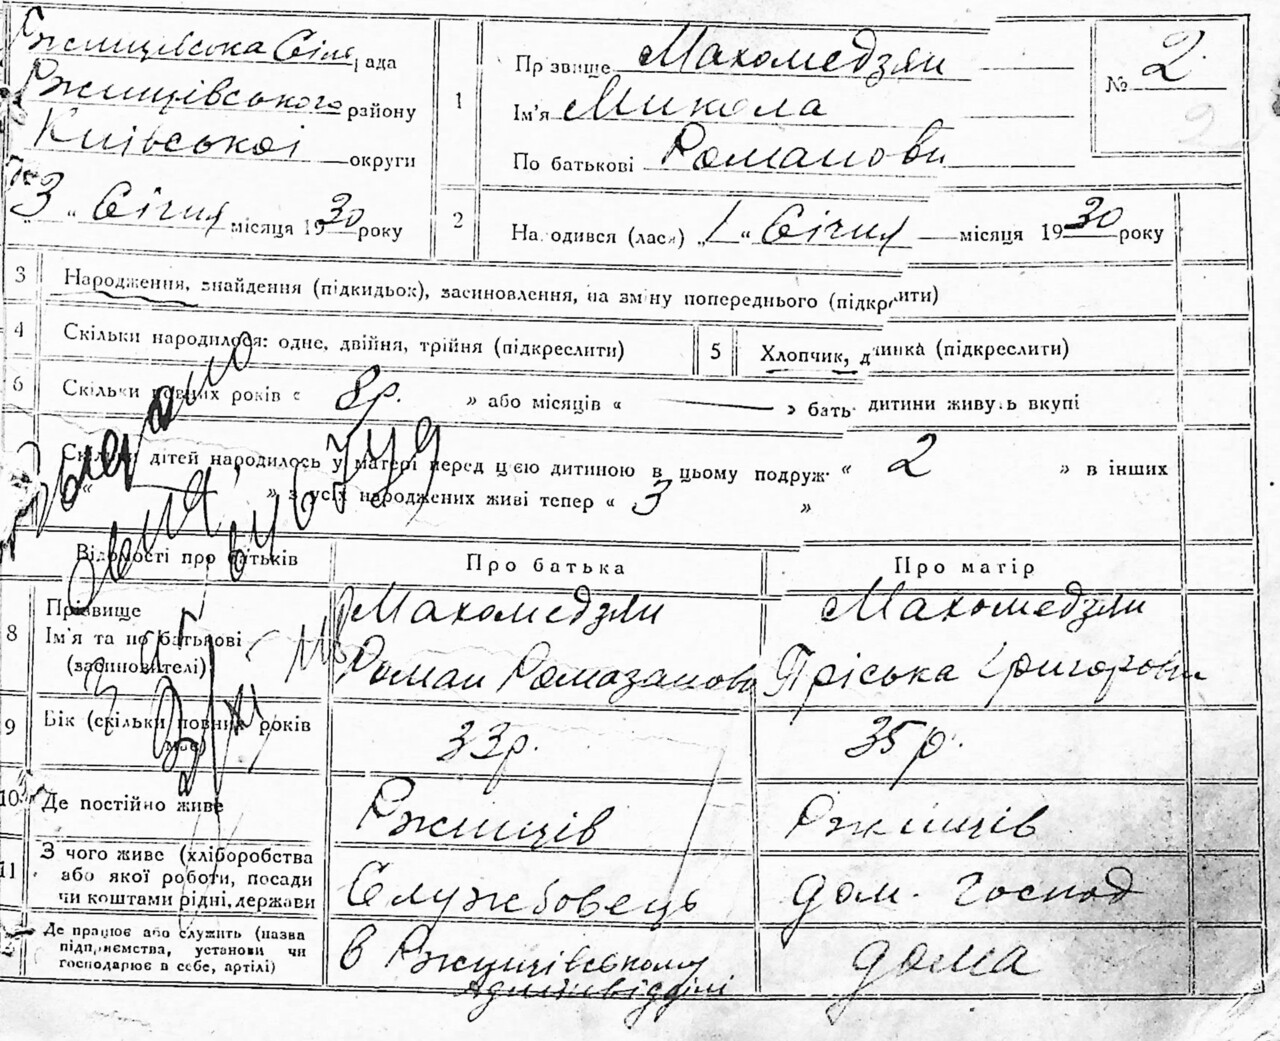 Ржищівська Сіль рада
Ржищівського району
Київської округи
3 " Січня місяця 1930 року
1
Прізвище Махомедзян
Ім'я Микола
По батькові Романови
№ 2
2
Народився (лася) " 1 " Січня місяця 1930 року
3 Народження, знайдення (підкидьок), засиновлення, на зміну попереднього (підкреслити)
4 Скільки народилося: одне, двійня, трійня (підкреслити)
5 Хлопчик, дівчинка (підкреслити)
6 Скільки повних років « 8р. » або місяців « — » батьки дитини живуть вкупі
Скільки дітей народилось у матері перед цією дитиною в цьому подруж. « 2 » в інших
« — » з усіх народжених живі тепер « 3 »
Відомості про батьків
Про батька
Про матір
8 Прізвище
Ім'я та по батькові
(засиновителі)
Махомедзян
Роман Рамазанов
Махомедзян
Пріська Григоровн
9 Вік (скільки повних років має)
33р.
35р.
10 Де постійно живе
Ржищів
Ржищів
11 З чого живе (хліборобства
або якої роботи, посади
чи коштами рідні, держави
Службовець
дом. господ
Де працює або служить (назва
підприємства, установи чи
господарює в себе, артілі)
в Ржищівському
Адмінвідділі
дома